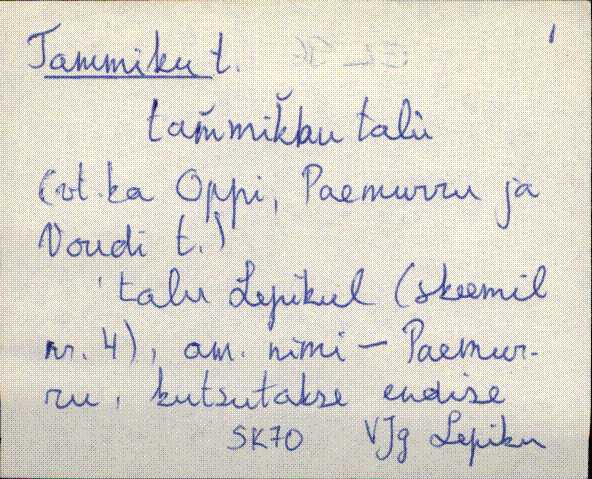 1
Tammiku t.
tam̆mik̆ku talù
(vt. ka Oppi, Paemurru ja
Voudi t.)
talu Lepikul (skeemil
nr. 4), am. nimi — Paemur-
ru, kutsutakse endise
SK70 VJg Lepiku